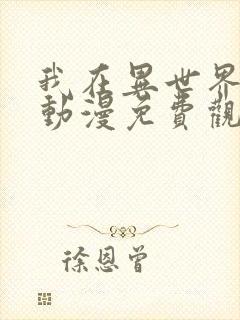 我在異世界
動漫免費觀
徐恩曾